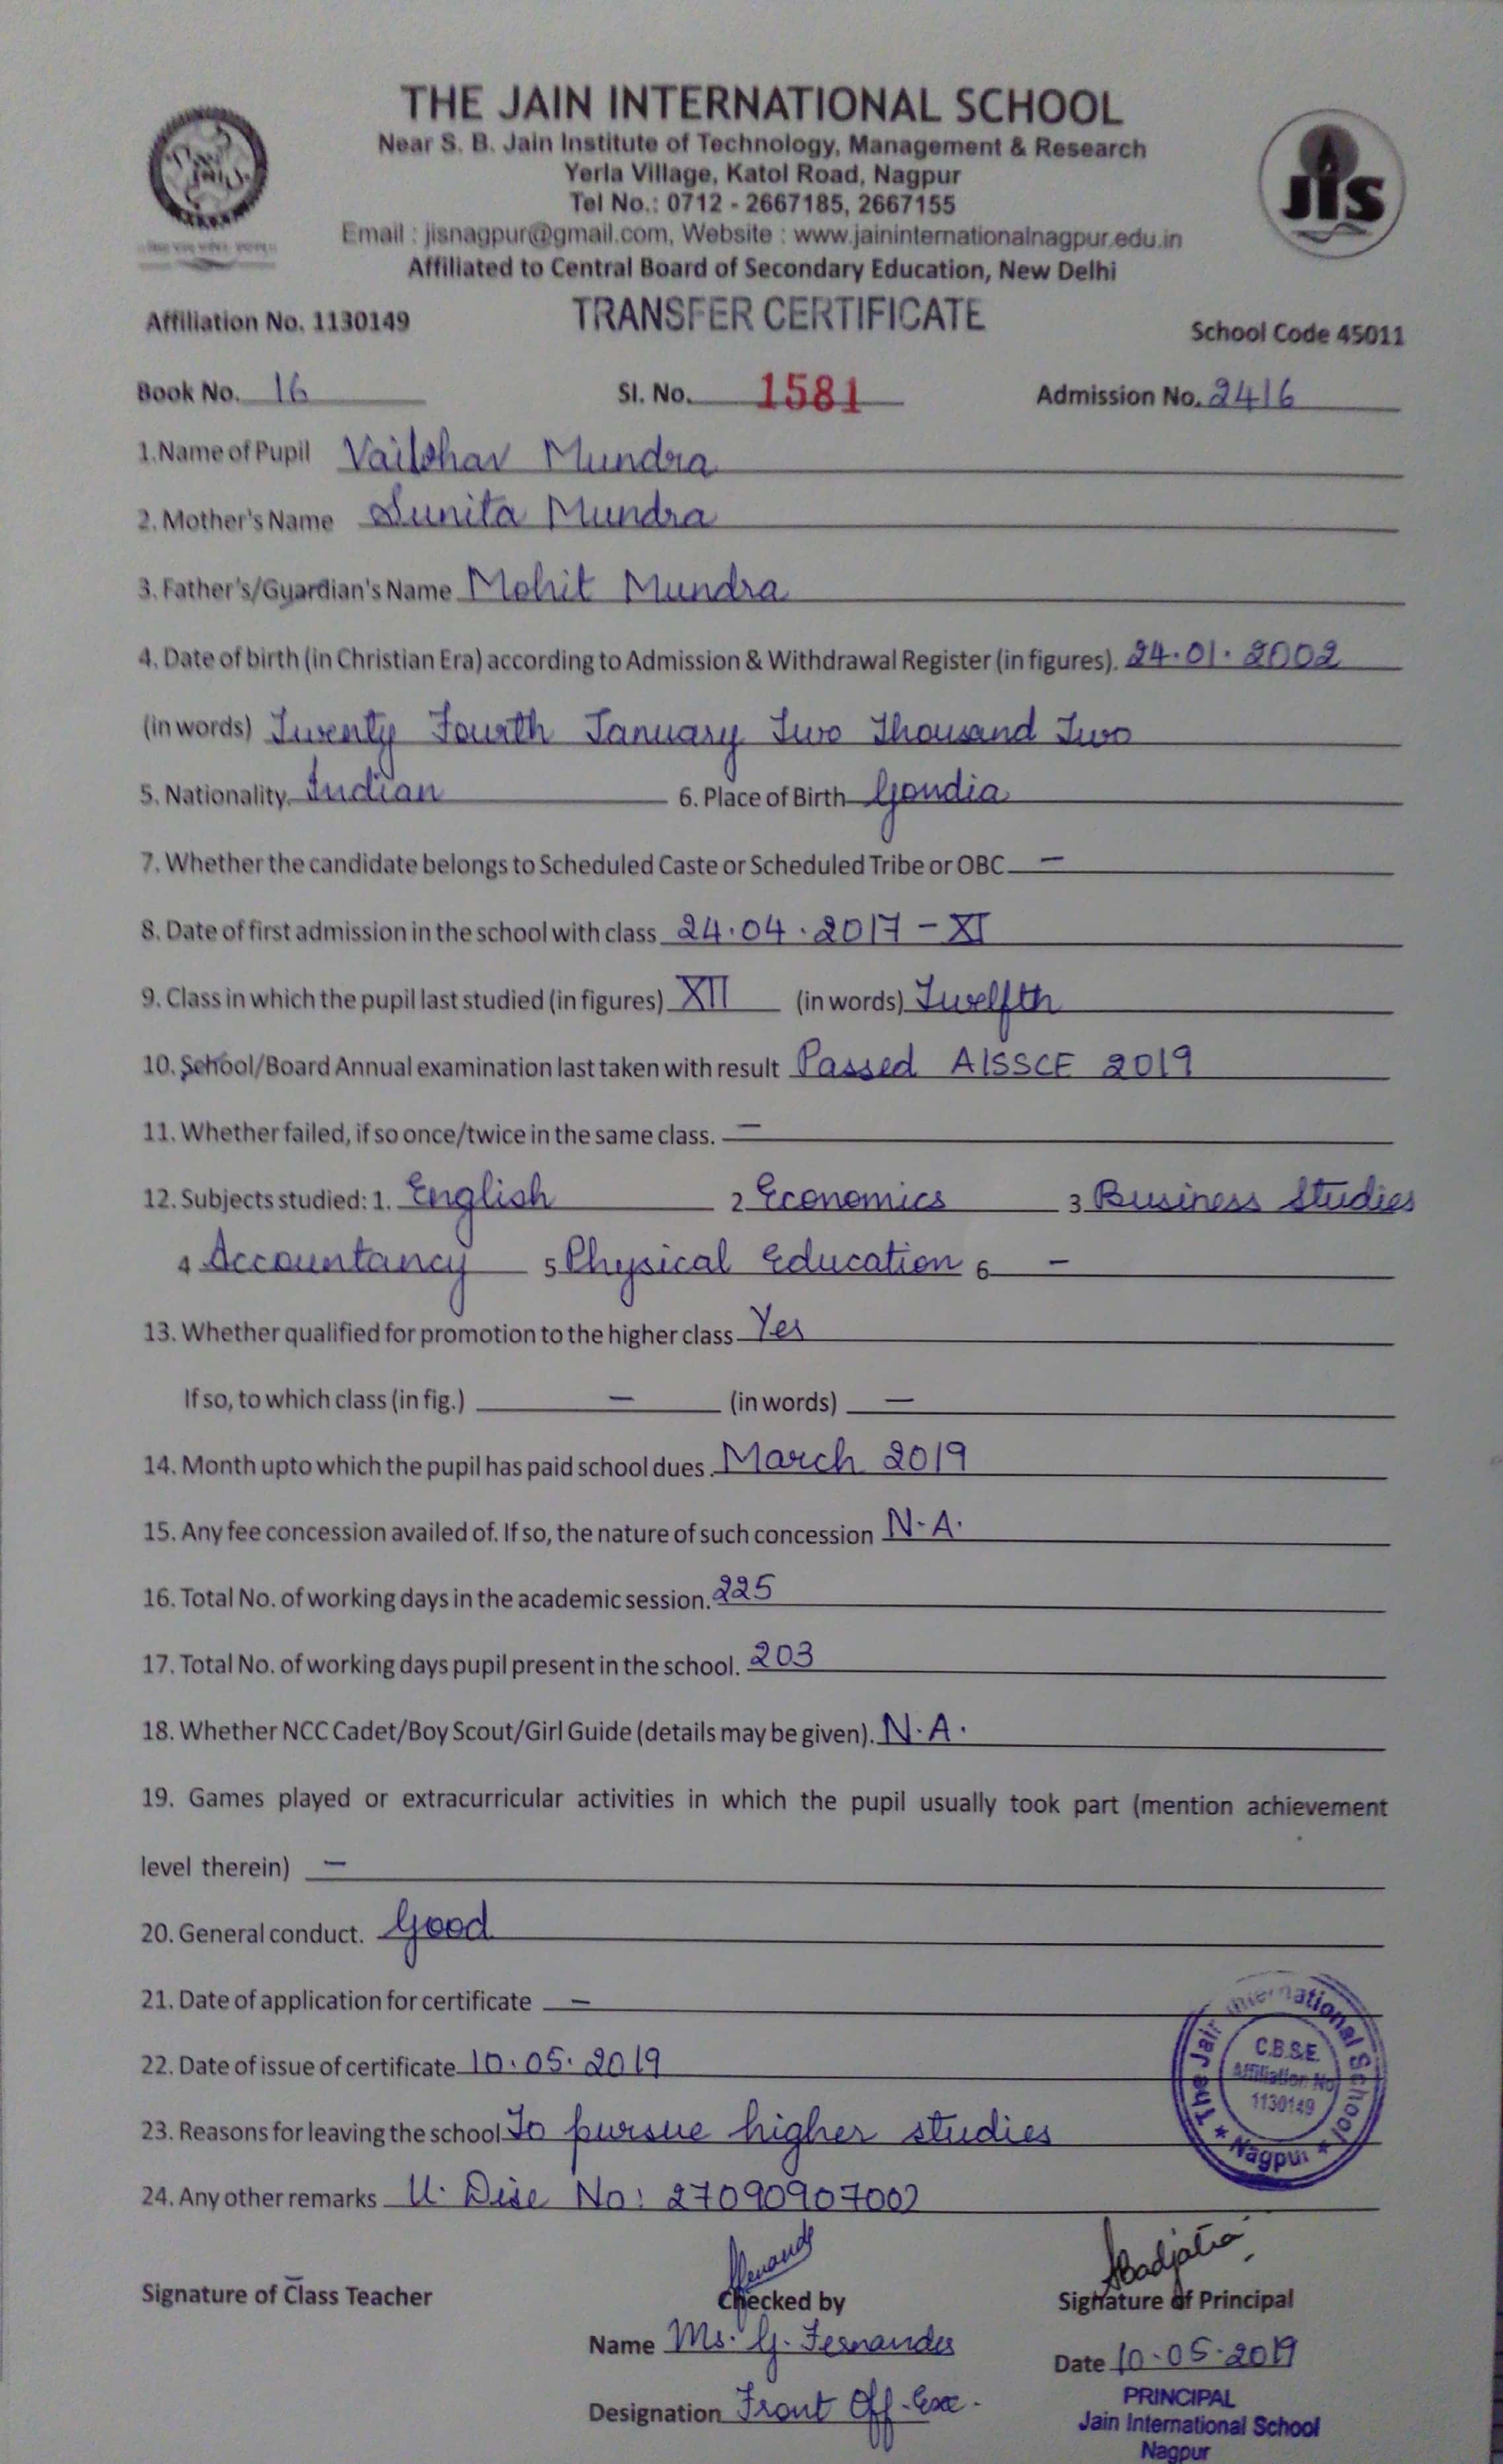 THE JAIN INTERNATIONAL SCHOOL
Near S. B. Jain Institute of Technology, Management & Research
Yerla Village, Katol Road, Nagpur
Tel No.: 0712 - 2667185, 2667155
Email : jisnagpur@gmail.com, Website : www.jaininternationalnagpur.edu.in
Affiliated to Central Board of Secondary Education, New Delhi
JIS
Affiliation No. 1130149 TRANSFER CERTIFICATE School Code 45011
Book No. 16 Sl. No. 1581 Admission No. 2416
1.Name of Pupil Vaibhav Mundra
2. Mother's Name Sunita Mundra
3. Father's/Guardian's Name Mohit Mundra
4. Date of birth (in Christian Era) according to Admission & Withdrawal Register (in figures). 24.01.2002
(in words) Twenty Fourth January Two Thousand Two
5. Nationality Indian 6. Place of Birth Gondia
7. Whether the candidate belongs to Scheduled Caste or Scheduled Tribe or OBC —
8. Date of first admission in the school with class 24.04.2017 - XI
9. Class in which the pupil last studied (in figures) XII (in words) Twelfth
10. School/Board Annual examination last taken with result Passed AISSCE 2019
11. Whether failed, if so once/twice in the same class. —
12. Subjects studied: 1. English 2 Economics 3 Business Studies
4 Accountancy 5 Physical Education 6 —
13. Whether qualified for promotion to the higher class Yes
If so, to which class (in fig.) — (in words) —
14. Month upto which the pupil has paid school dues. March 2019
15. Any fee concession availed of. If so, the nature of such concession N.A.
16. Total No. of working days in the academic session. 225
17. Total No. of working days pupil present in the school. 203
18. Whether NCC Cadet/Boy Scout/Girl Guide (details may be given). N.A.
19. Games played or extracurricular activities in which the pupil usually took part (mention achievement
level therein) —
20. General conduct. Good
21. Date of application for certificate —
22. Date of issue of certificate 10.05.2019
23. Reasons for leaving the school To pursue higher studies
24. Any other remarks U. Dise No: 27090907002
The Jain International School
★ Nagpur ★
C.B.S.E.
Affiliation No
1130149
Signature of Class Teacher Checked by Signature of Principal
Name Ms. G. Fernandes Date 10.05.2019
Designation Front Off. Exe.
PRINCIPAL
Jain International School
Nagpur